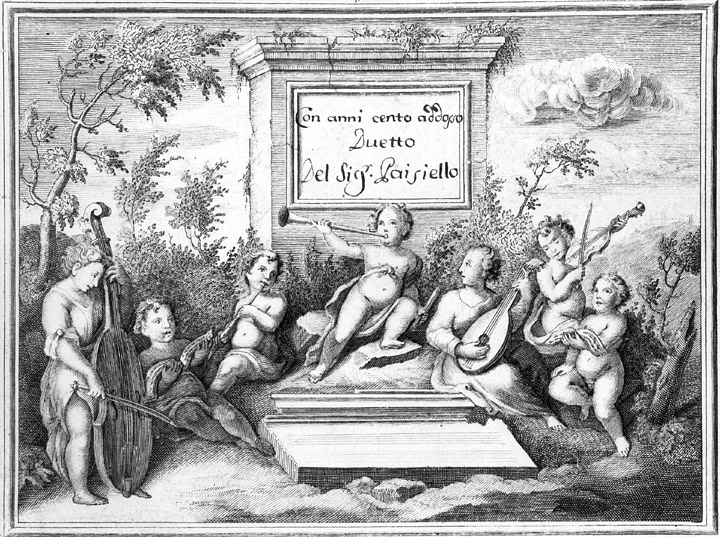 Con anni cento addosso
Duetto
Del Sig.r Paisiello